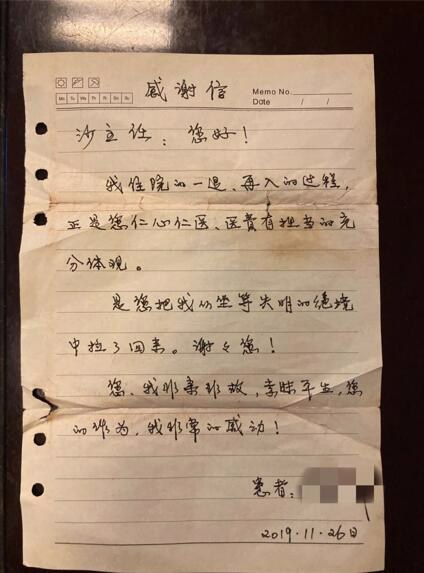 感谢信
Memo No.
Mo Tu We Th Fr Sa Su
Date / /
沙主任：您好！
我住院的一退、再入的过程，
正是您仁心仁医、医责有担当的充
分体现。
是您把我从坐等失明的绝境
中拉了回来。谢々您！
您、我非亲非故，素昧平生，您
的作为，我非常的感动！
患者：
2019.11.26日